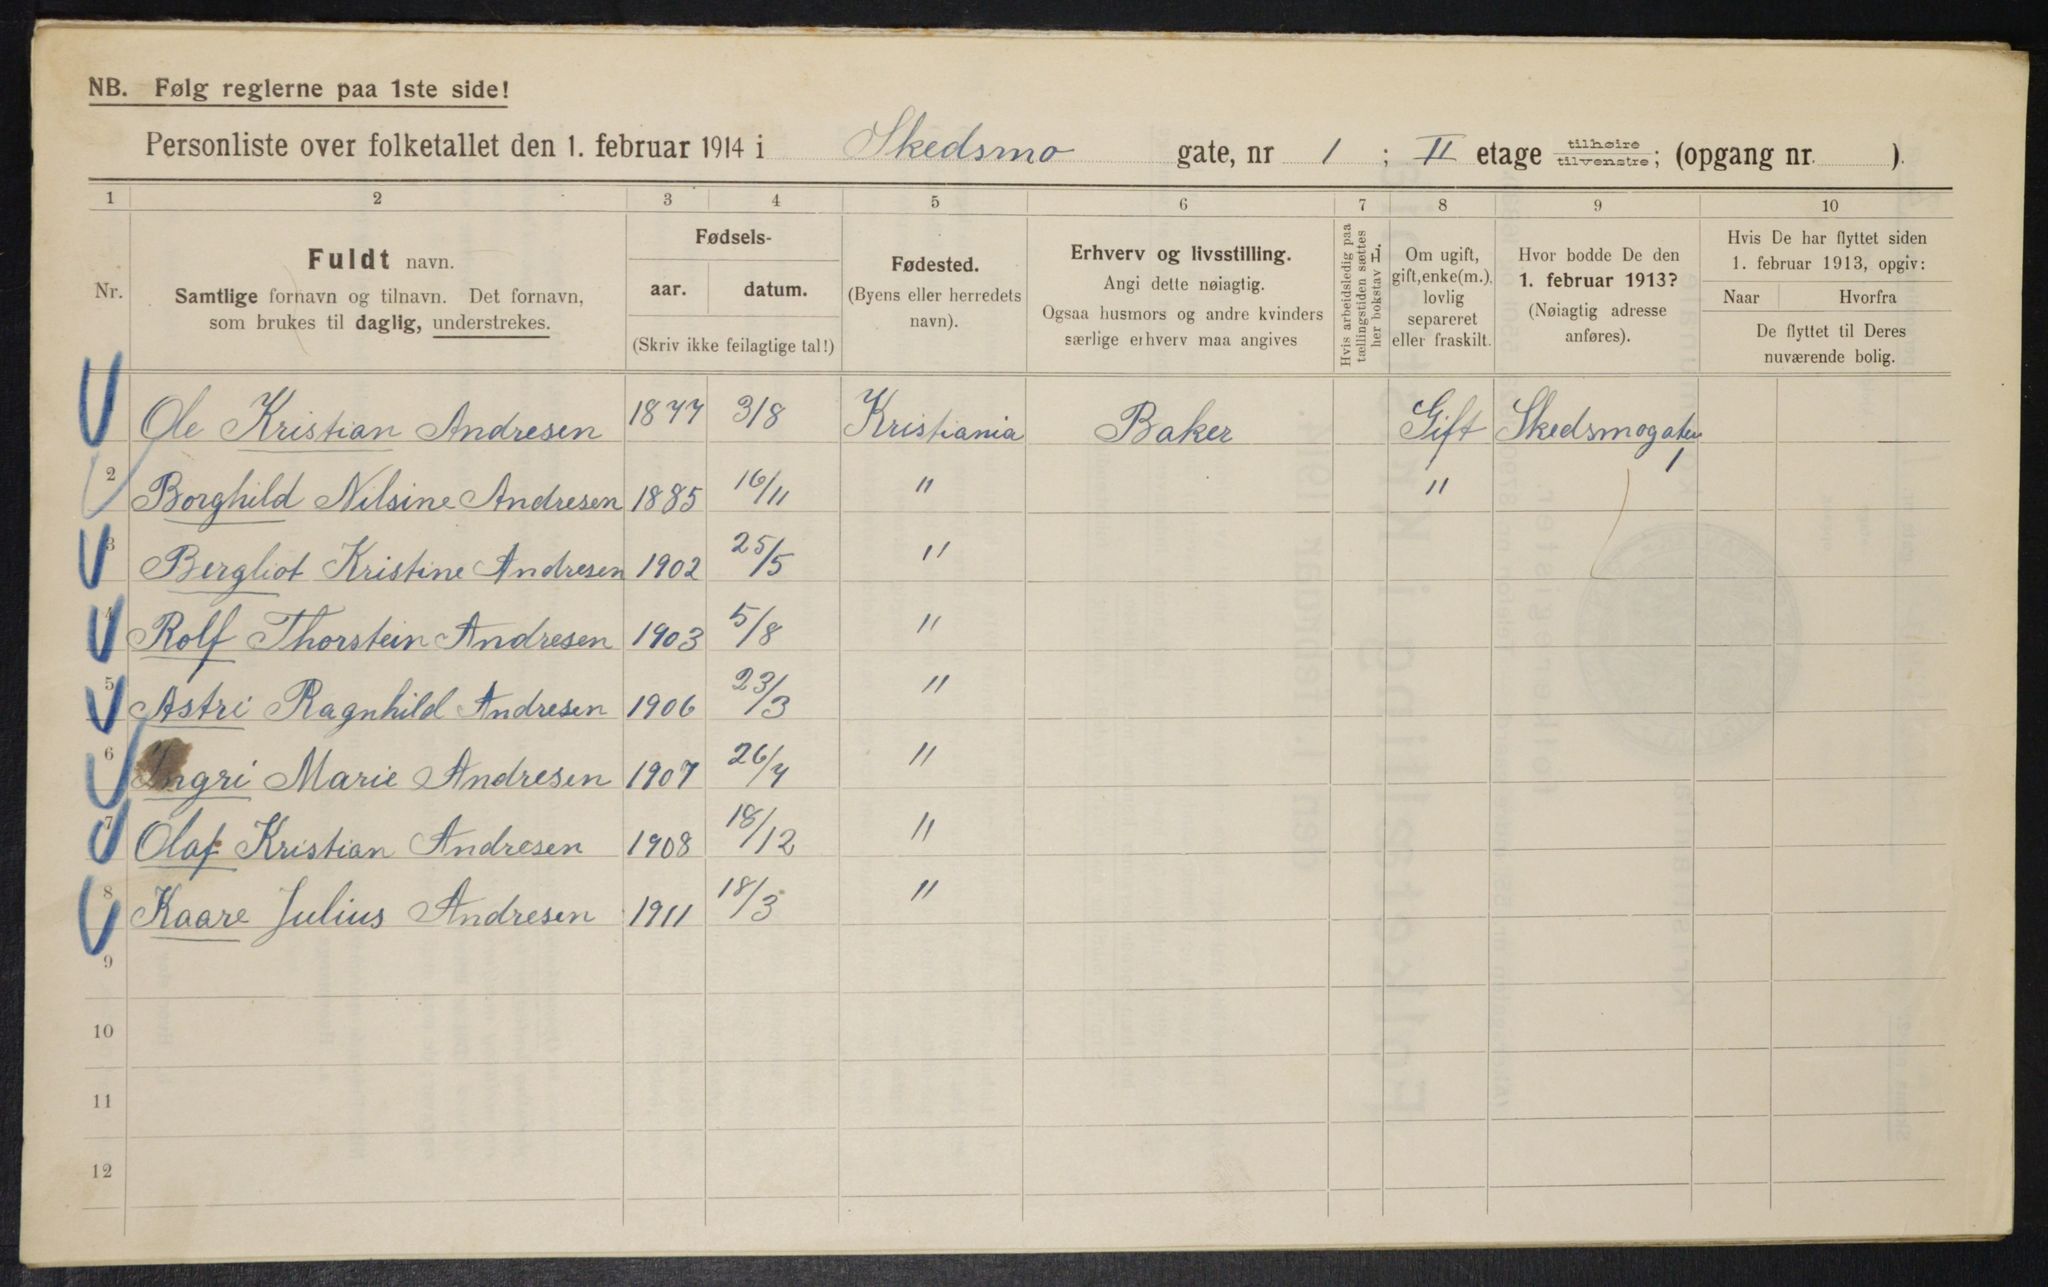 NB. Følg reglerne paa 1ste side!
Personliste over folketallet den 1. februar 1914 i Skedsmo gate, nr 1 ; II etage tilhøire/tilvenstre; (opgang nr. ).
1 2 3 4 5 6 7 8 9 10
Nr.
Fuldt navn.
Samtlige fornavn og tilnavn. Det fornavn,
som brukes til daglig, understrekes.
Fødsels-
aar. datum.
(Skriv ikke feilagtige tal!)
Fødested.
(Byens eller herredets
navn).
Erhverv og livsstilling.
Angi dette nøiagtig.
Ogsaa husmors og andre kvinders
særlige erhverv maa angives
Hvis arbeidsledig paa
tællingstiden sættes
her bokstav L.
Om ugift,
gift, enke(m.),
lovlig
separeret
eller fraskilt.
Hvor bodde De den
1. februar 1913?
(Nøiagtig adresse
anføres).
Hvis De har flyttet siden
1. februar 1913, opgiv:
Naar Hvorfra
De flyttet til Deres
nuværende bolig.
Ole Kristian Andresen 1877 3/8 Kristiania Baker Gift Skedsmogaten
1
2 Borghild Nilsine Andresen 1885 16/11 " "
3 Bergliot Kristine Andresen 1902 25/5 "
4 Rolf Thorstein Andresen 1903 5/8 "
5 Astri Ragnhild Andresen 1906 23/3 "
6 Ingri Marie Andresen 1907 26/7 "
7 Olaf Kristian Andresen 1908 18/12 "
8 Kaare Julius Andresen 1911 18/3 "
9
10
11
12